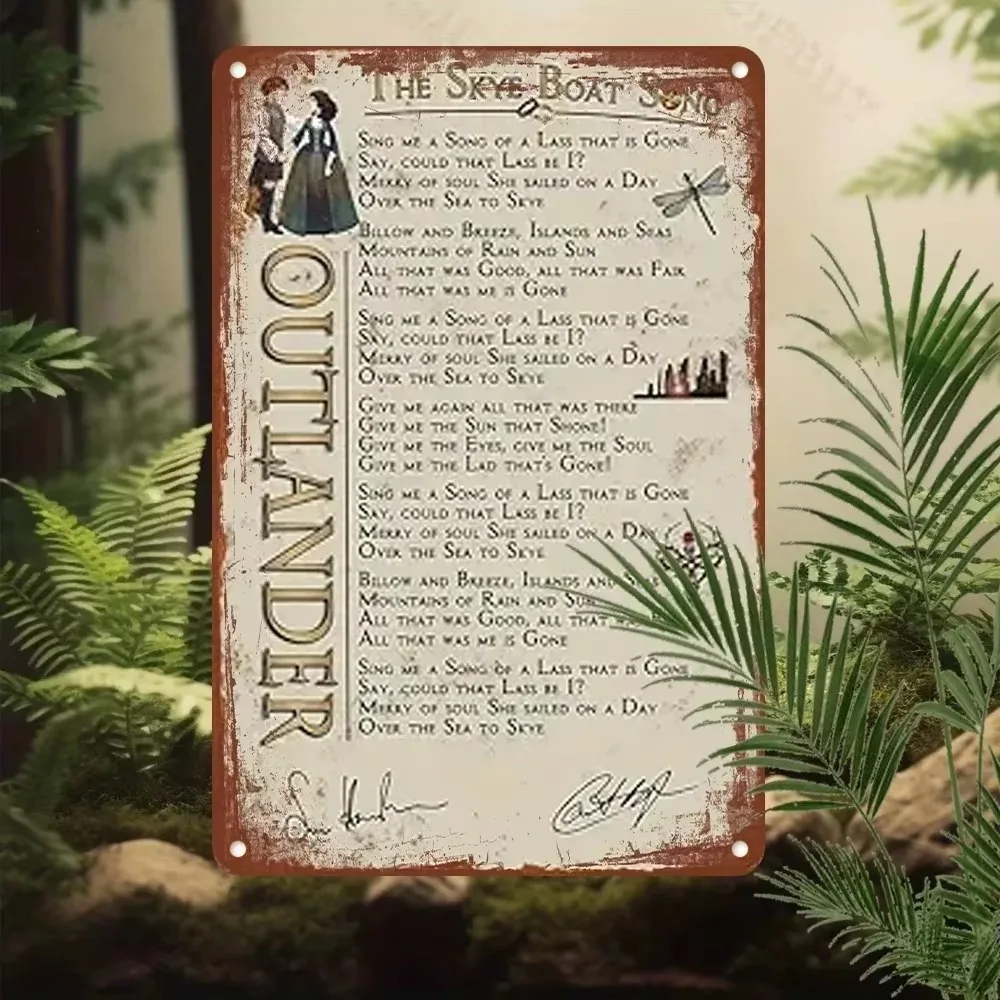 The Skye Boat Song
OUTLANDER
Sing me a Song of a Lass that is Gone
Say, could that Lass be I?
Merry of soul She sailed on a Day
Over the Sea to Skye
Billow and Breeze, Islands and Seas
Mountains of Rain and Sun
All that was Good, all that was Fair
All that was me is Gone
Sing me a Song of a Lass that is Gone
Say, could that Lass be I?
Merry of soul She sailed on a Day
Over the Sea to Skye
Give me again all that was there
Give me the Sun that Shone!
Give me the Eyes, give me the Soul
Give me the Lad that's Gone!
Sing me a Song of a Lass that is Gone
Say, could that Lass be I?
Merry of soul She sailed on a Day
Over the Sea to Skye
Billow and Breeze, Islands and Seas
Mountains of Rain and Sun
All that was Good, all that
All that was me is Gone
Sing me a Song of a Lass that is Gone
Say, could that Lass be I?
Merry of soul She sailed on a Day
Over the Sea to Skye